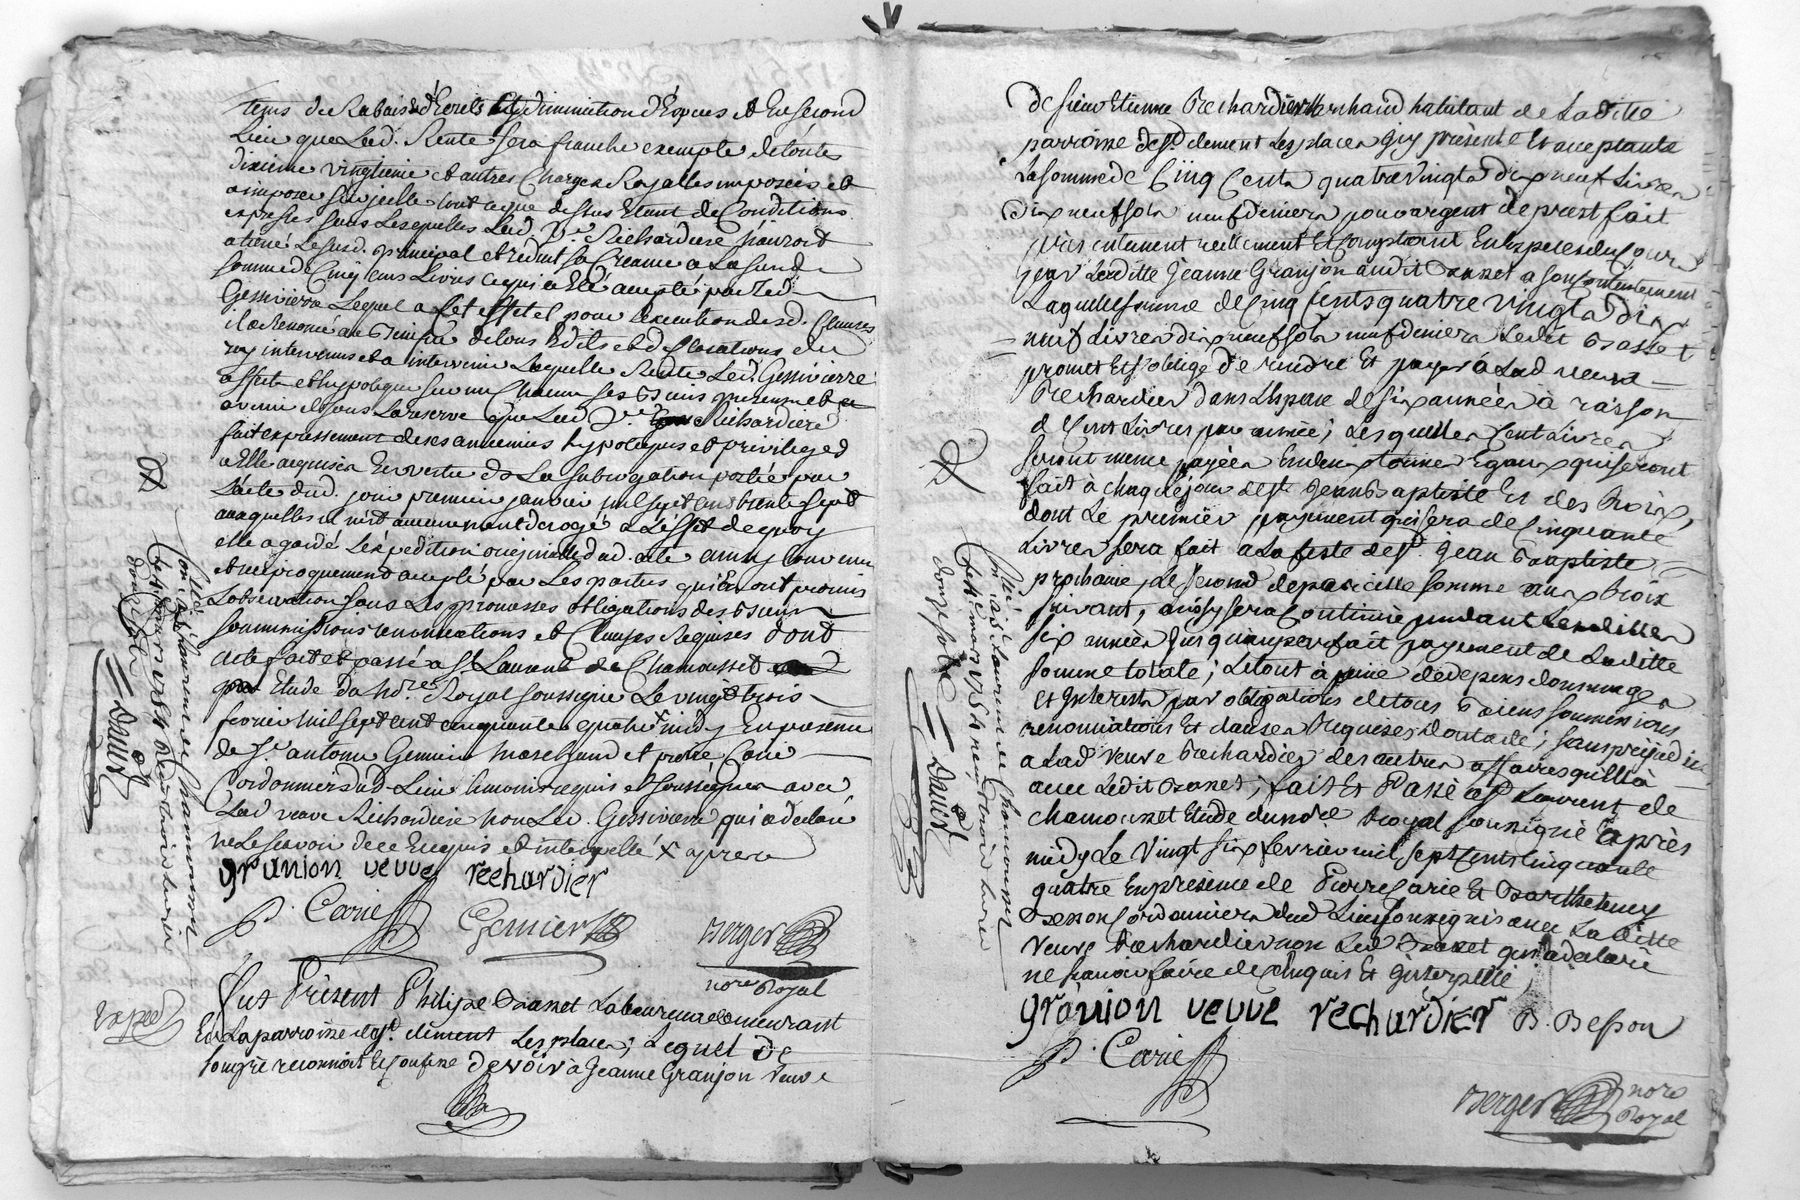 tems de Rabais d'Ecuts et diminution d'Especes et En second
Lieu que Lad. Rente sera franche exempte de toutes
dixieme vingtieme et autres Charges Royalles imposées et
a imposer sur jcelle tout ce que dessus Etant de Conditions
expresses sans Lesquelles Lad. Ve. Richardiere n'auroit
Le susd. principal et reduit sa Creance a La susd.
somme de Cinq Cens Livres ce qui a Eté accepté par Led.
Gessiviera Lequel a cet effet et pour L'execution desd. Clauses
il a Renoncé au benefice de tous Edits et declarations du
roy intervenus et a intervenir Laquelle Rente Led. Gessivierre
affecte et hypoteque sur un Chacun ses biens presents et a
avenir et sous La reserve que Lad. Ve. Richardiere
fait expressement de ses anciennes hypoteques et privileges
a Elle acquises En vertu de La subrogation portée par
L'acte dud. jour premier janvier mil sept cens trente sept
auxquelles il n'est aucunement derogé a L'effet de quoy
elle a gardé L'expedition originelle dud. acte ainsy convenu
et reciproquement accepté par Les parties qui En ont promis
L'observation sous Les promesses obligations des biens
soummissions renonciations et Clauses Requises dont
acte fait et passé a St. Laurent de Chamousset
Etude du Nore. Royal soussigné Le vingt trois
fevrier mil sept cent cinquante quatre En presence
de Sr. antoine Gemier Marchand et pierre Carie
Cordonniers dud. Lieu temoins requis et soussignés avec
Lad. veuve Richardiere non Led. Gessiviera qui a declaré
ne Le scavoir de ce Enquis et interpellé X apres
granjon veuve rechardier
P. Carie Gemier Berger
nore Royal
Exped
Fut Présent Philipe Basset Laboureur demeurant
En La parroisse de St. clement Les places; Lequel de
son gré reconnoit Et confesse devoir à Jeanne Granjon veuve
Conllé à St Laurent de Chamousset
Ce 8e mars 1754 Reçu
douze sols
= Dauist
de sieur Etienne Rechardier Marchand habitant de Laditte
parroisse de St. clement Les places Icy presente Et acceptante
La somme de Cinq Cents quatre vingts dix neuf Livres
Dix neuf sols neuf deniers pour argent de prest fait
reellement Et comptant En Especes du Cours
par Laditte Jeanne Granjon audit Basset a son Contentement
Laquelle somme de Cinq Cents quatre vingts dix
neuf Livres dix neuf sols neuf deniers Ledit Basset
promet Et s'oblige de rendre Et payer à Lad. veuve
Rechardier dans L'Espace de six années à raison
de Cent Livres par année; Lesquelles Cent Livres
seront meme payées En deux termes Egaux qui seront
fait à chaque jour de St. Jean Baptiste Et des Roix,
dont Le premier payement qui sera de Cinquante
Livres sera fait a La feste de St. Jean Baptiste
prochaine, Le second de pareille somme aux Roix
suivant, ainsy sera Continué pendant Lesdittes
six années jusqu'au parfait payement de Laditte
somme totale; Le tout à peine de depens dommages
Et Interests par obligations de tous biens soumissions
renonciations Et clauses Requises dont acte; sans prejudice
a Lad. veuve Rechardier des autres affaires qu'Elle a
avec Ledit Basset; fait Et Passé à St Laurent de
Chamousset Etude du nore Royal soussigné après
midy Le vingt six fevrier mil sept Cents Cinquante
quatre En presence de Pierre Carie Et Barthelemy
Besson Cordonniers dud. Lieu soussignés avec Laditte
veuve Rechardier non Led. Basset qui a declaré
ne scavoir faire de ce Enquis Et Interpellé;
granjon veuve rechardier B. Besson
P. Carie
Berger nore
Royal
Conllé à St Laurent de Chamousset
Ce 8e mars 1754 Reçu
douze sols
= Dauist